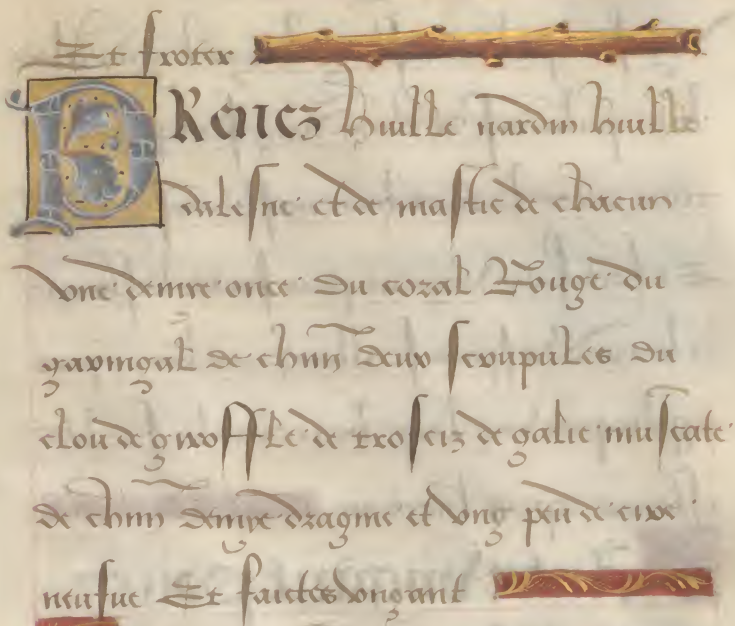 Et froter
PRenes huille nardin huille
dalesne et de mastic de chacun
vne demye once Du coral Rouge du
garingal de chun deux scrupules du
clou de giroffle de trosciz de galie muscate
de chun demye dragme et vng peu de cire
neufue Et faictes vngant